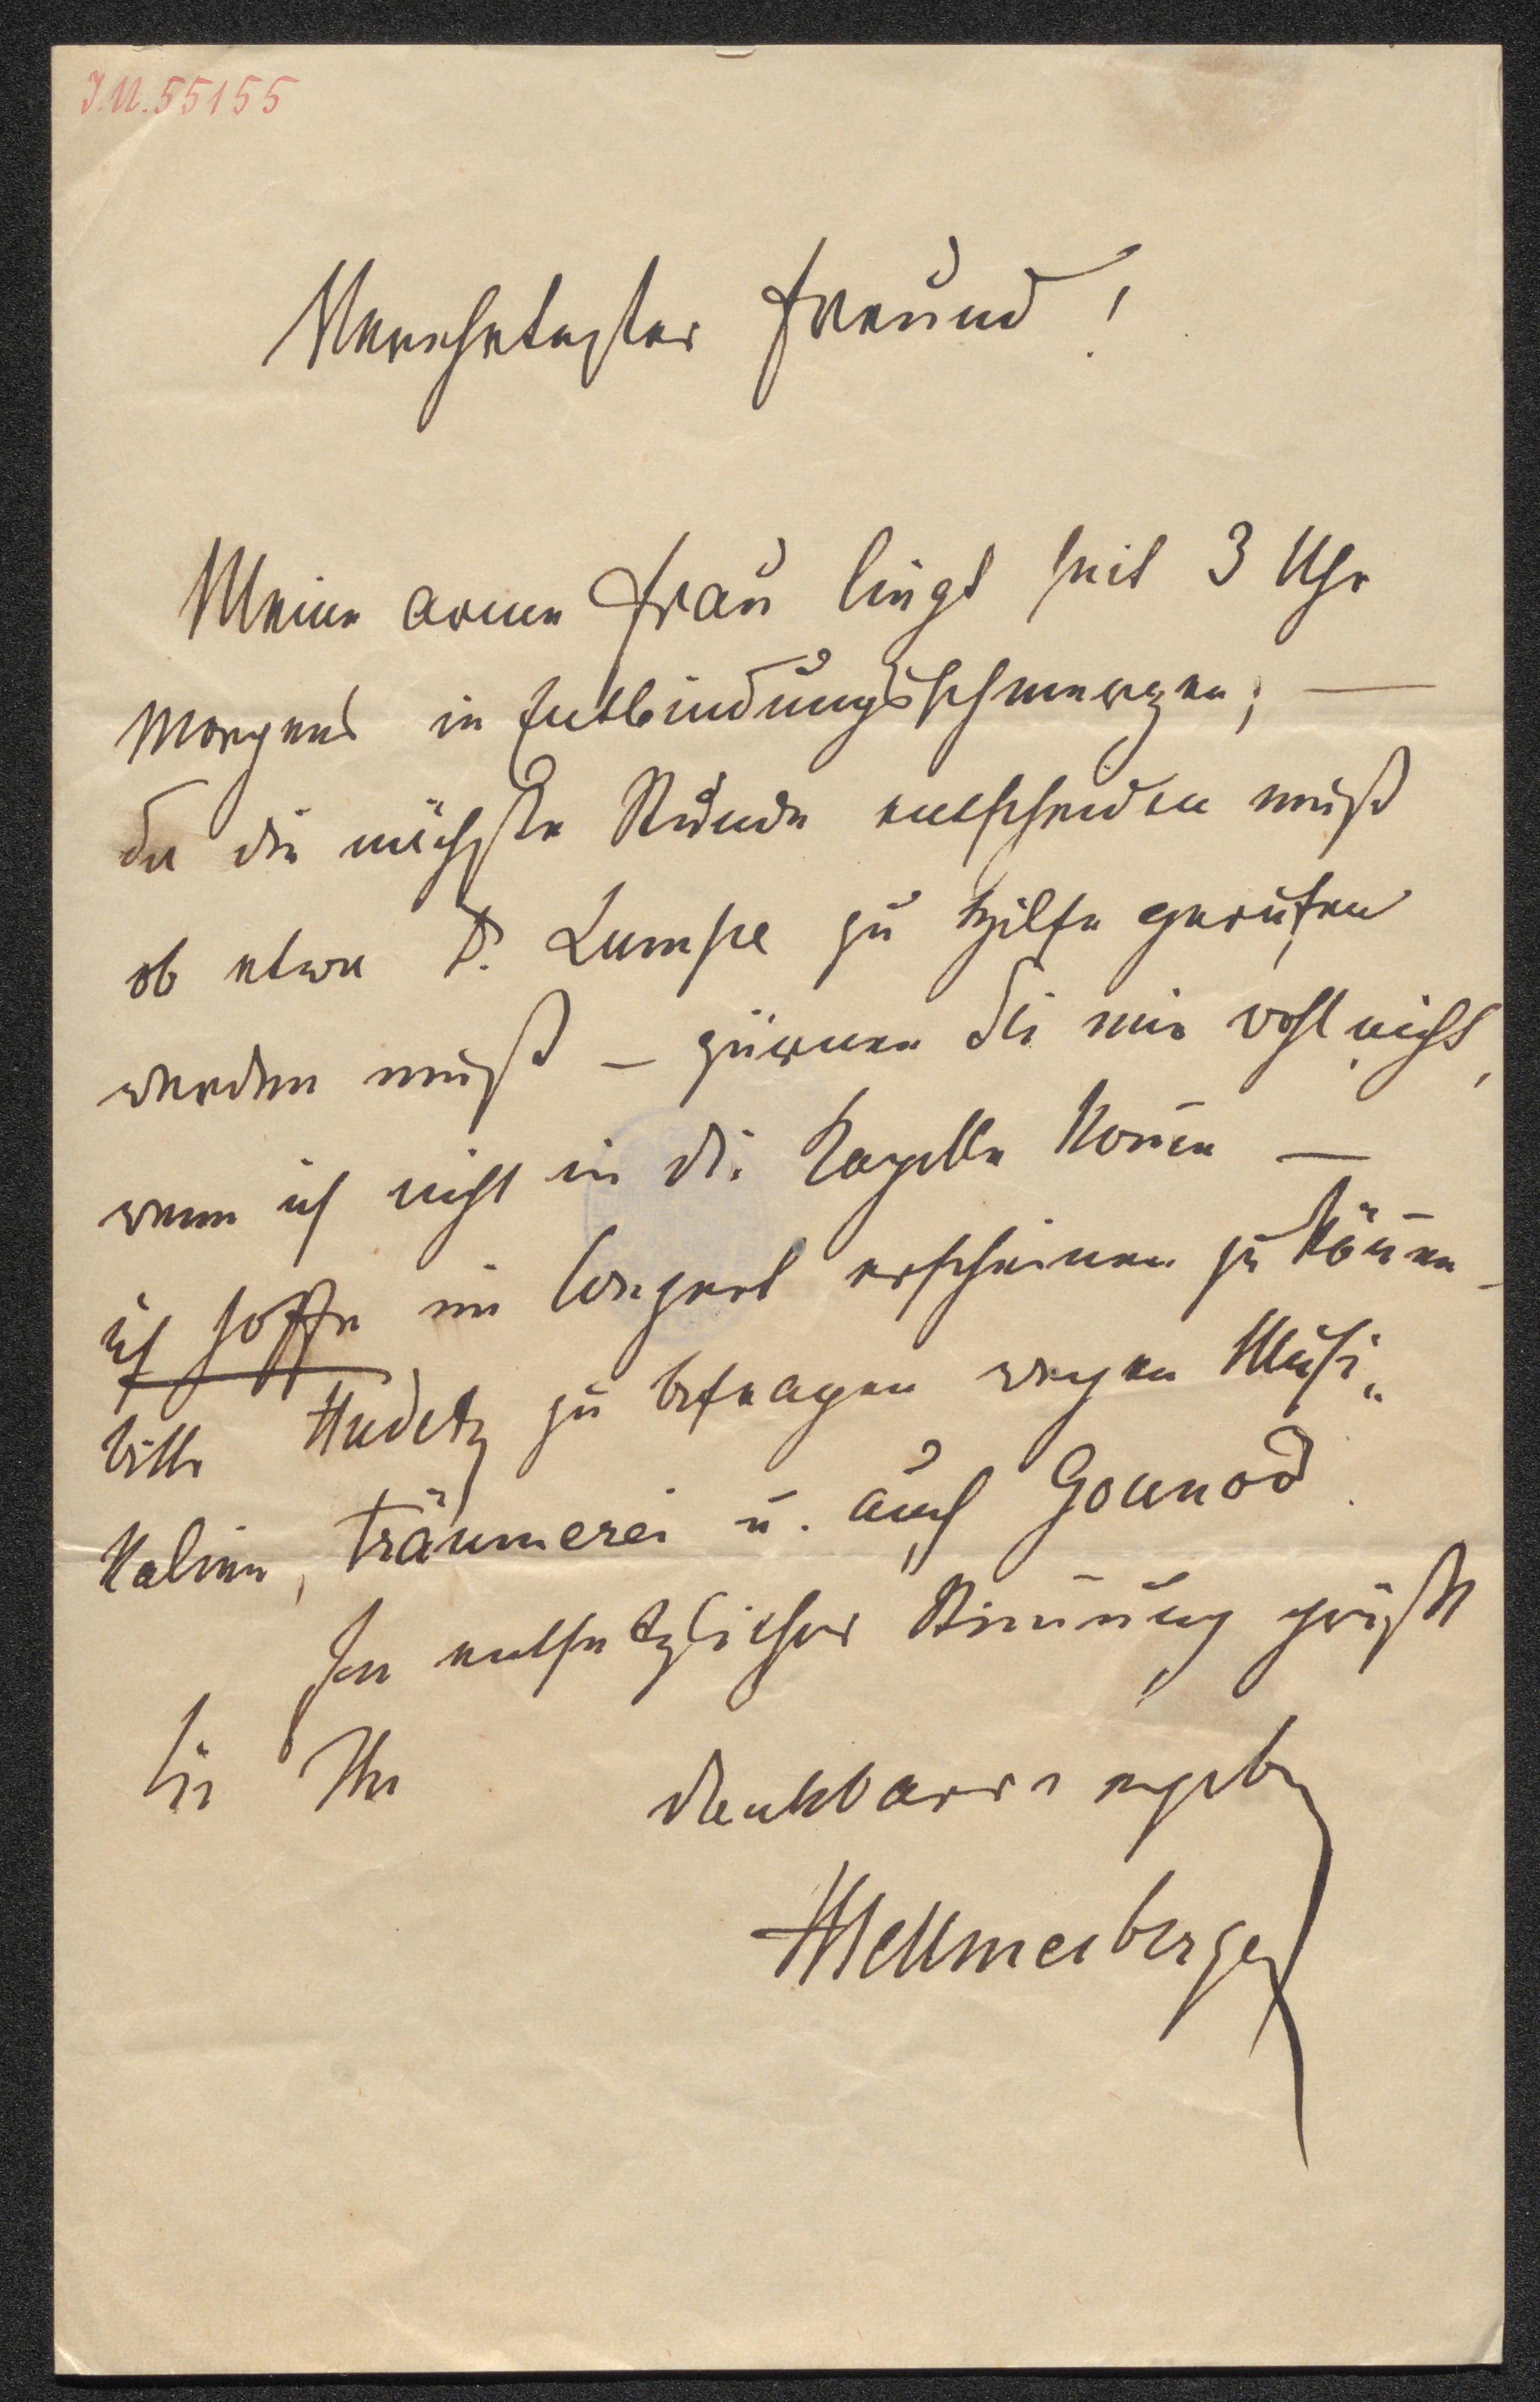 J.N. 55155
Verehrtester Freund!
Meine arme Frau liegt seit 3 Uhr
Morgens in Entbindungsschmerzen; —
da die nächste Stunde entscheiden muß
ob etwa D. Lumpe zu Hilfe gerufen
werden muß – zürnen Sie mir wohl nicht,
wenn ich nicht in die Kapelle kom̄e —
ich hoffe im Conzert erscheinen zu kön̄en –
bitte Hudetz zu befragen wegen Musi„
kalien, Träumerei u. auch Gounod.
In entsetzlicher Stim̄ung grüßt
Sie Ihr dankbarer ergeb
Hellmesberger